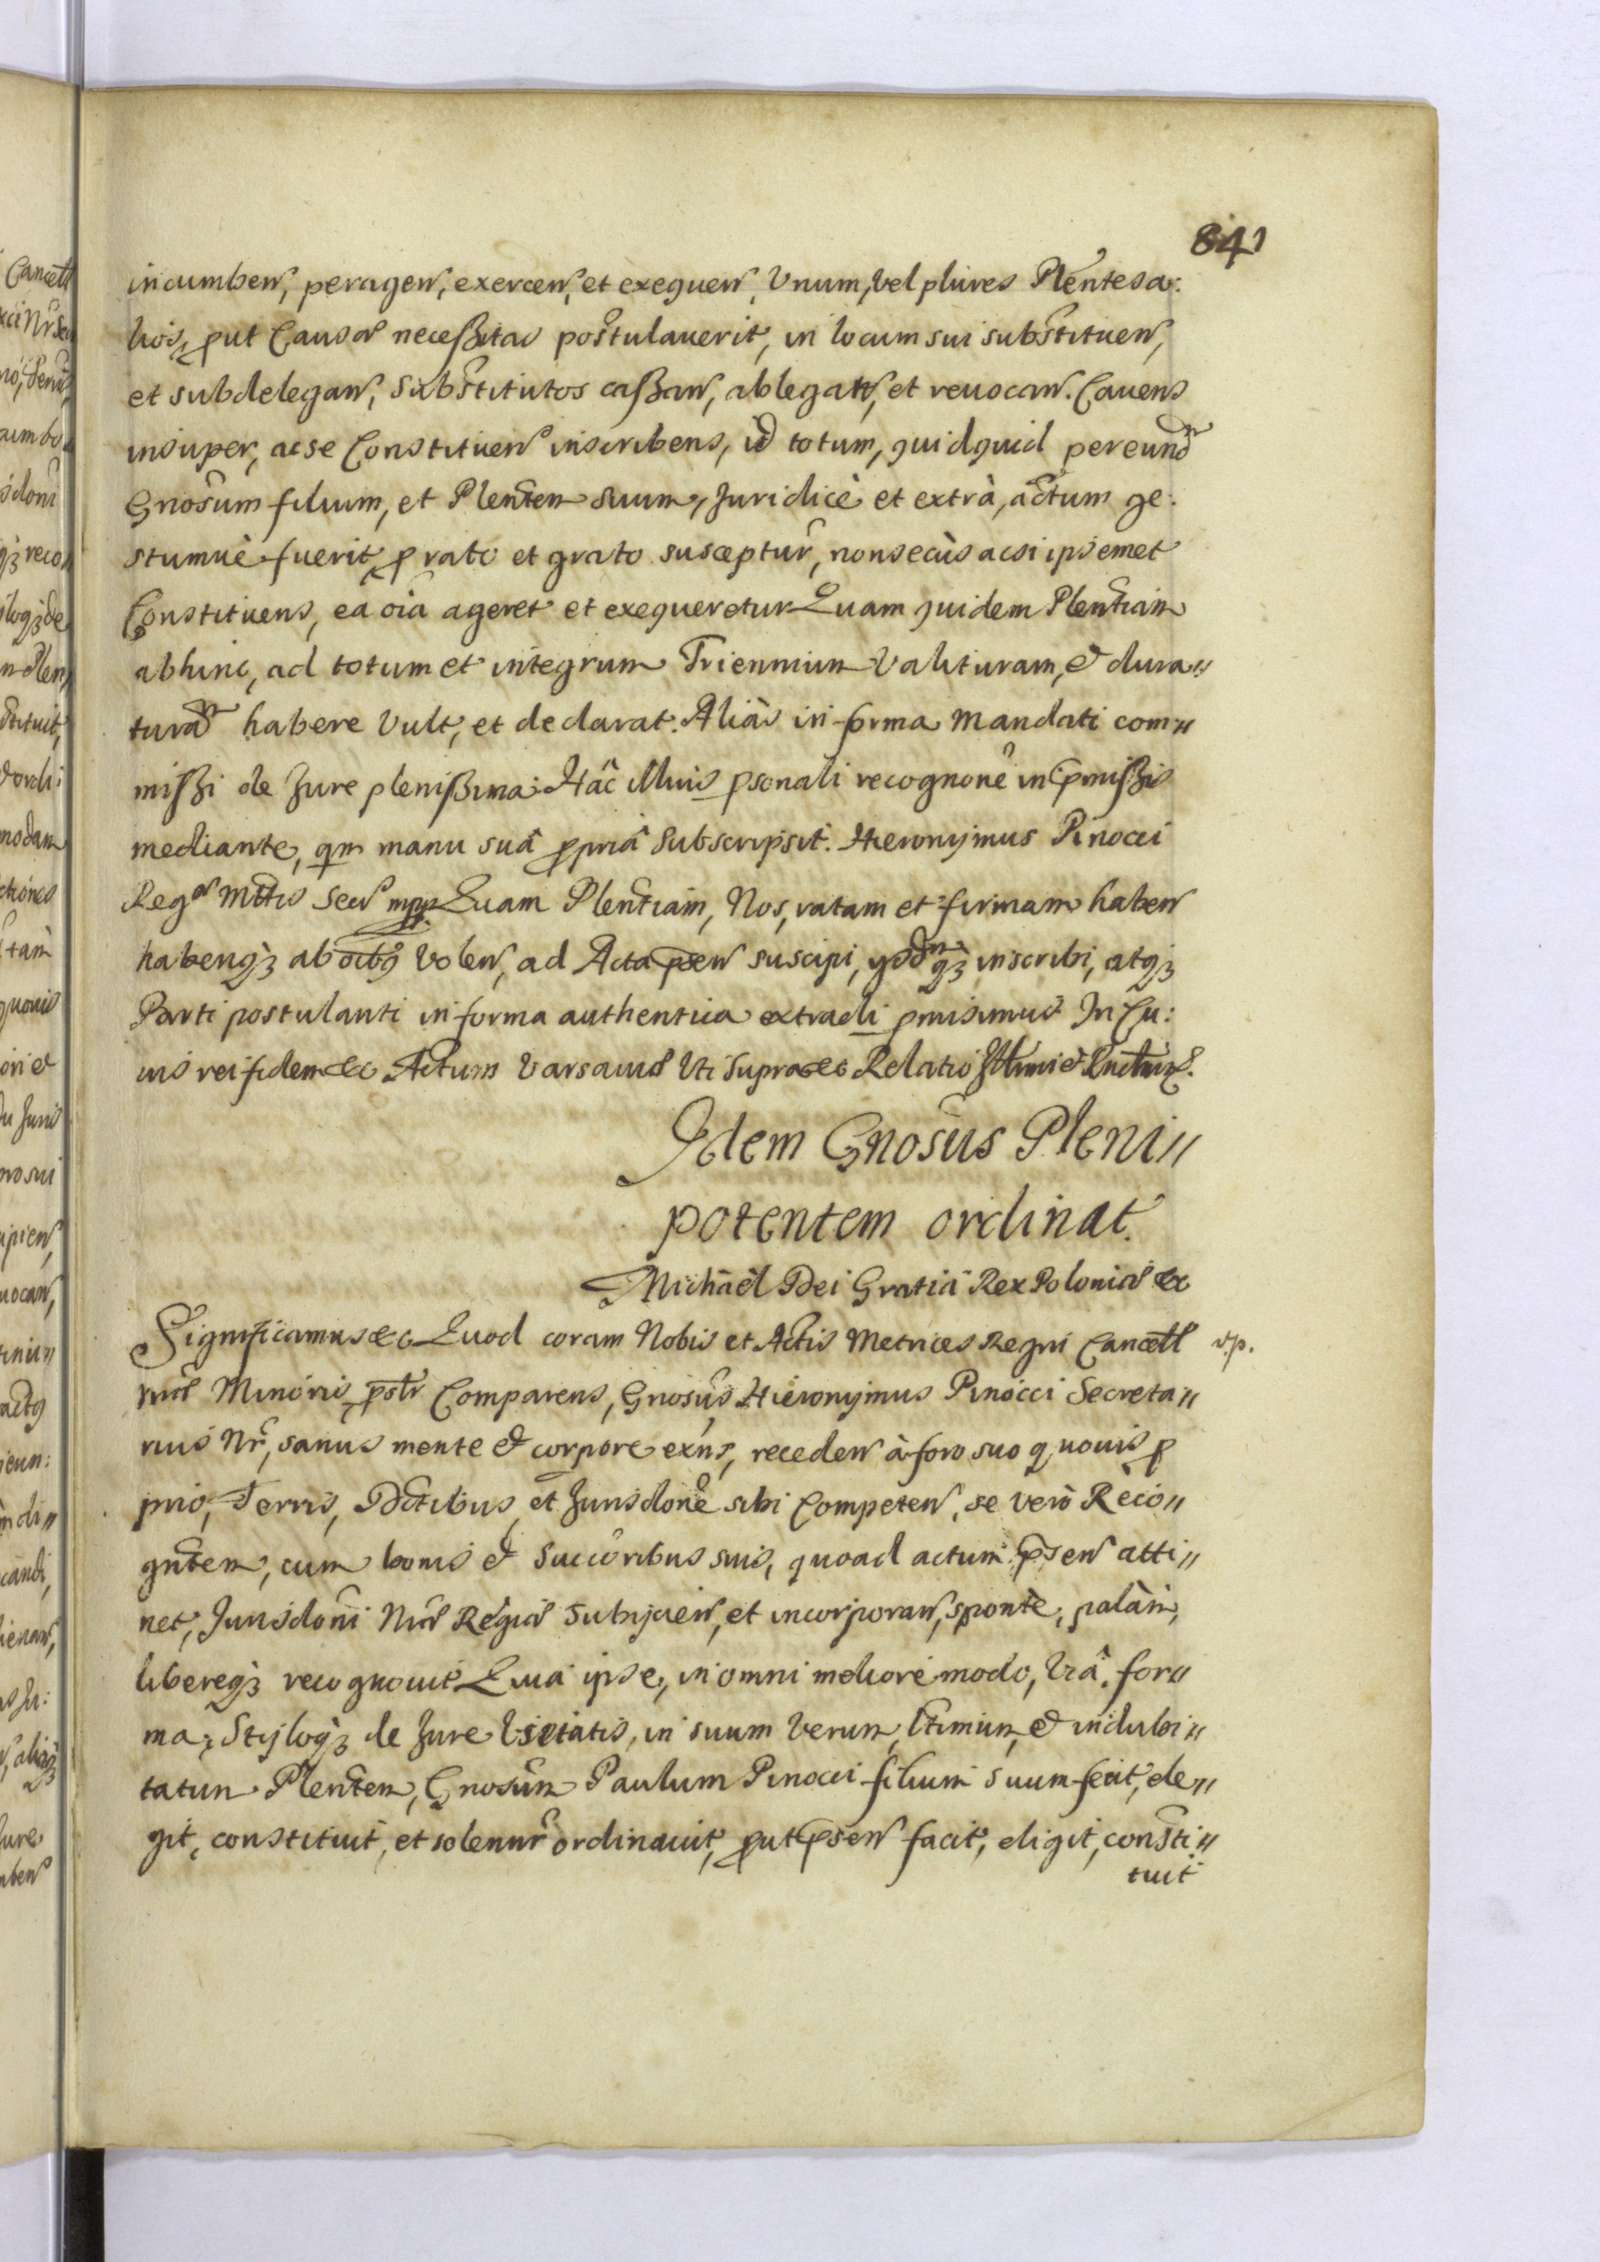 841
incumben, peragen, exercen, et exequen, Unum, vel plures Plentes a:
lios, put Causæ necessitas postulaverit, in locum sui substituen,
et subdelegan, substitutos cassan, ablegan, et revocan. Cavens
insuper, ac se Constituen inscribens, id totum, quidquid per eund
Gnosum filium, et Plentem suum, Juridicè et extrà, actum ge:
stumvè fuerit, p rato et grato susceptur, non secùs ac si ipsemet
Constituens, ea oia ageret et exequeretur Quam quidem Plentiam
abhinc, ad totum et integrum Triennium valituram, et dura=
turam habere vult, et declarat. Aliàs in forma Mandati com=
missi de Jure plenissima. Hâc Illius psonali recognone in pmissis
mediante, qm manu suâ ppriâ subscripsit. Hieronymus Pinocci
Regæ Mttis Secr mpp Quam Plentiam, Nos, ratam et firmam haben
habenq3 ab oibq volen, ad Acta psen suscipi, q3 inscribi, atq3
Parti postulanti in forma authentica extradi pmisimus In Cu:
ius rei fidem &c Actum Varsaviæ Uti supra &c Relatio Illmi et
Idem Gnosus Pleni=
potentem ordinat.
Michaël Dei Gratiâ Rex Poloniæ &c
Significamus &c Quod coram Nobis et Actis Metrices Regni Cancell v.p.
riæ Minoris pstr Comparens, Gnosus Hieronymus Pinocci Secreta=
rius Nr, sanus mente et corpore exns, receden à foro suo quovis p
prio, Terris, Dctibus, et Jurisdone sibi competen, se verò Reco=
gntem, cum bonis et succoribus suis, quoad actum psen atti=
net, Jurisdoni Nræ Regiæ subijcien, et incorporan, spontè, palàm,
liberèq3 recognovit Quia ipse, in omni meliore modo, viâ, for=
ma, styloq3 de Jure Usitatis, in suum verum, ltimum, et indubi=
tatum Plentem, Gnosum Paulum Pinocci filium suum fecit, ele=
git, constituit, et solennr ordinavit, put psen facit, eligit, consti=
tuit